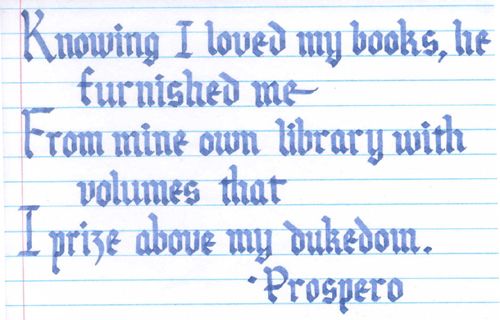 Knowing I loved my books, he
furnished me
From mine own library with
volumes that
I prize above my dukedom.
·Prospero